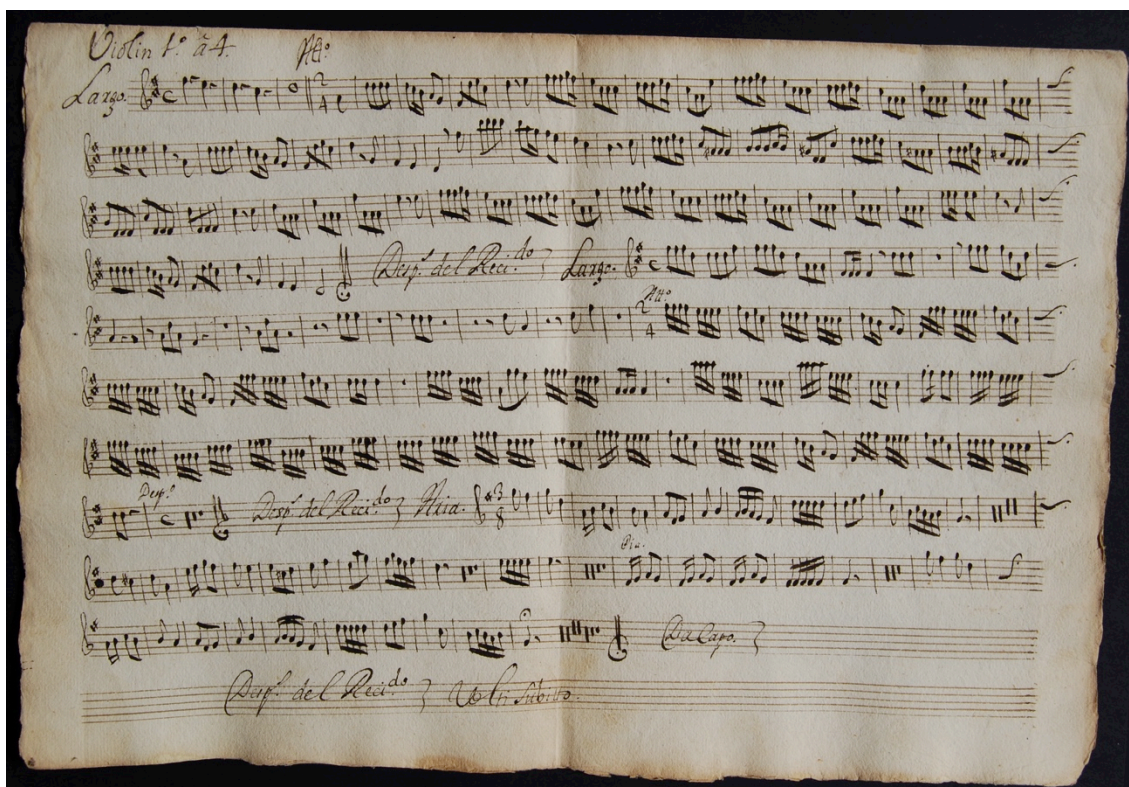 Violin 1.º à 4.
Largo. All.º
2 4
Desp.s del Reci.do Largo.
All.º
2 4
Desp.º
Desp.s del Reci.do Aria. 3 8
Pia.
Da Capo.
Desp.s del Reci.do Volti Subitto.